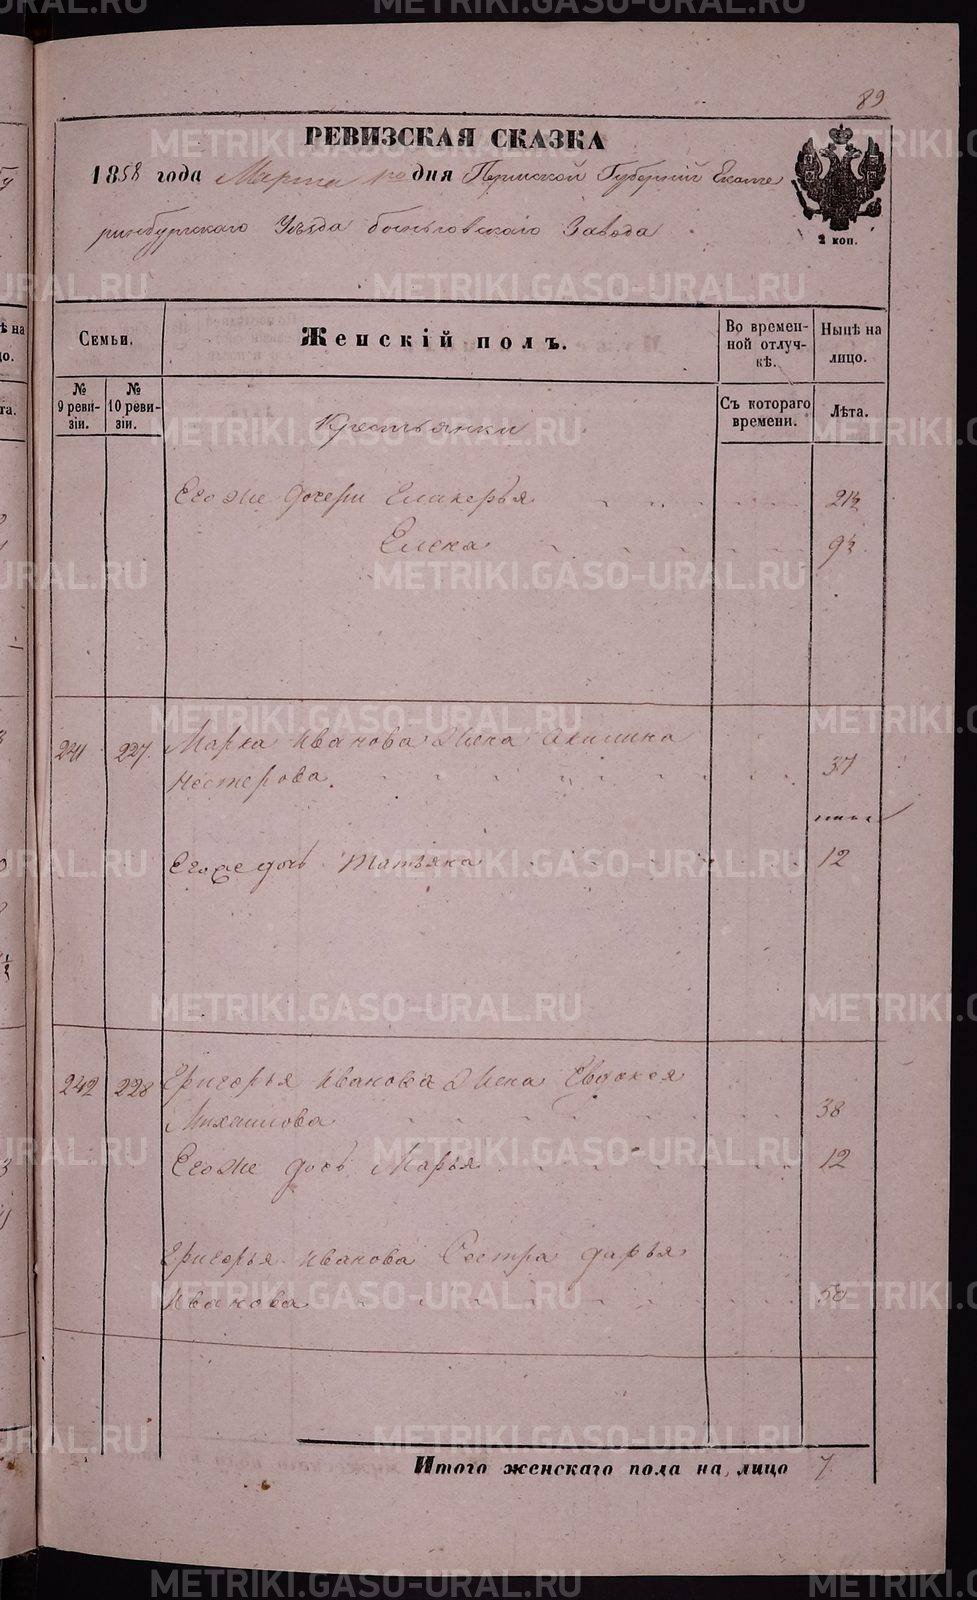 89
РЕВИЗСКАЯ СКАЗКА
1858 года Марта 1го дня Пермской Губерніи Екате
ринбургскаго Уѣзда Завода
2 коп.
Семьи.
Женскій полъ.
Во времен-
ной отлуч-
кѣ.
Нынѣ на
лицо.
№
9 реви-
зіи.
№
10 реви-
зіи.
Съ котораго
времени.
Лѣта.
Крестьянки
Егоже дочери Гликерья 21½
Елена 9½
241 227. Марка Иванова Жена Акилина
Нестерова. 37
Егоже дочь Татьяна 12
242 228 Григорья Иванова Жена Евдокея
Михаилова 38
Егоже дочь Марья 12
Григорья Иванова Сестра Дарья
Иванова 50
Итого женскаго пола на лицо 7
METRIKI.GASO-URAL.RU